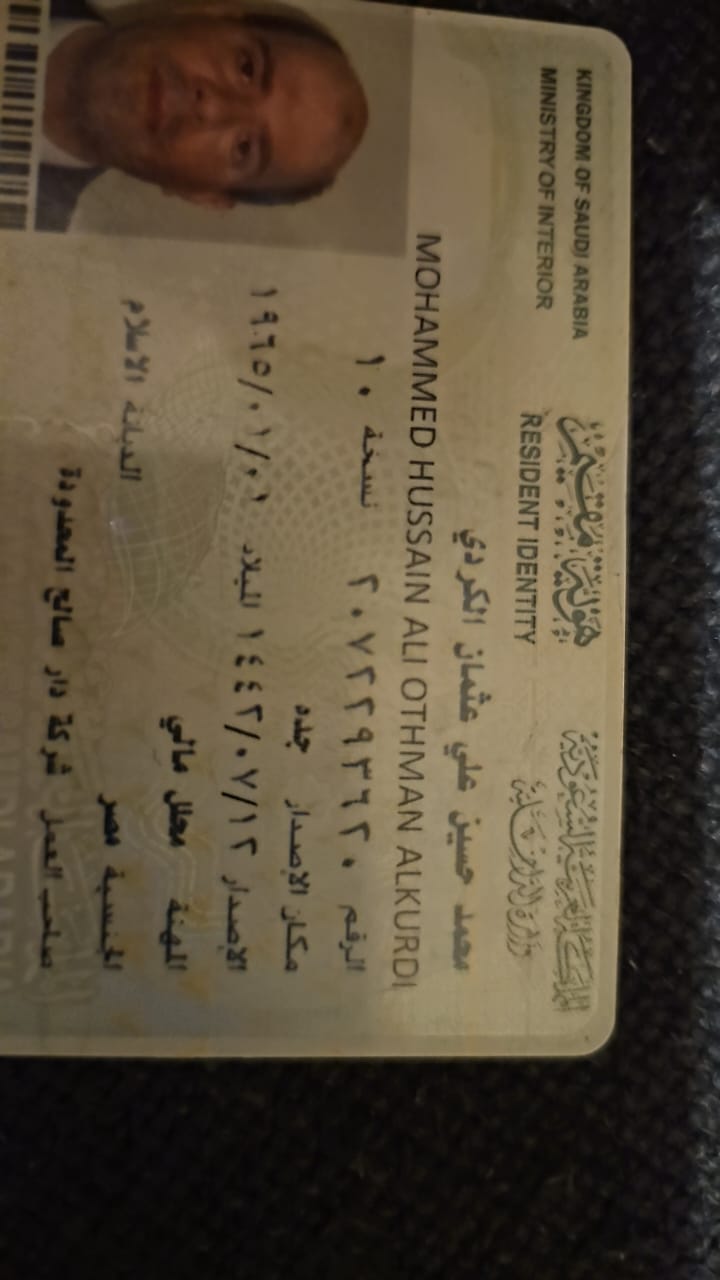 المملكة العربية السعودية
وزارة الداخلية
هوية مقيم
RESIDENT IDENTITY
KINGDOM OF SAUDI ARABIA
MINISTRY OF INTERIOR
محمد حسين علي عثمان الكردي
MOHAMMED HUSSAIN ALI OTHMAN ALKURDI
الرقم ٢٠٧٢٢٩٣٦٢٠ نسخة ١٠
مكان الإصدار جده
الإصدار ١٤٤٢/٠٧/١٢ الميلاد ١٩٦٥/٠١/٠١
المهنة محلل مالي
الجنسية مصر الديانة الاسلام
صاحب العمل شركة دار صالح المحدودة